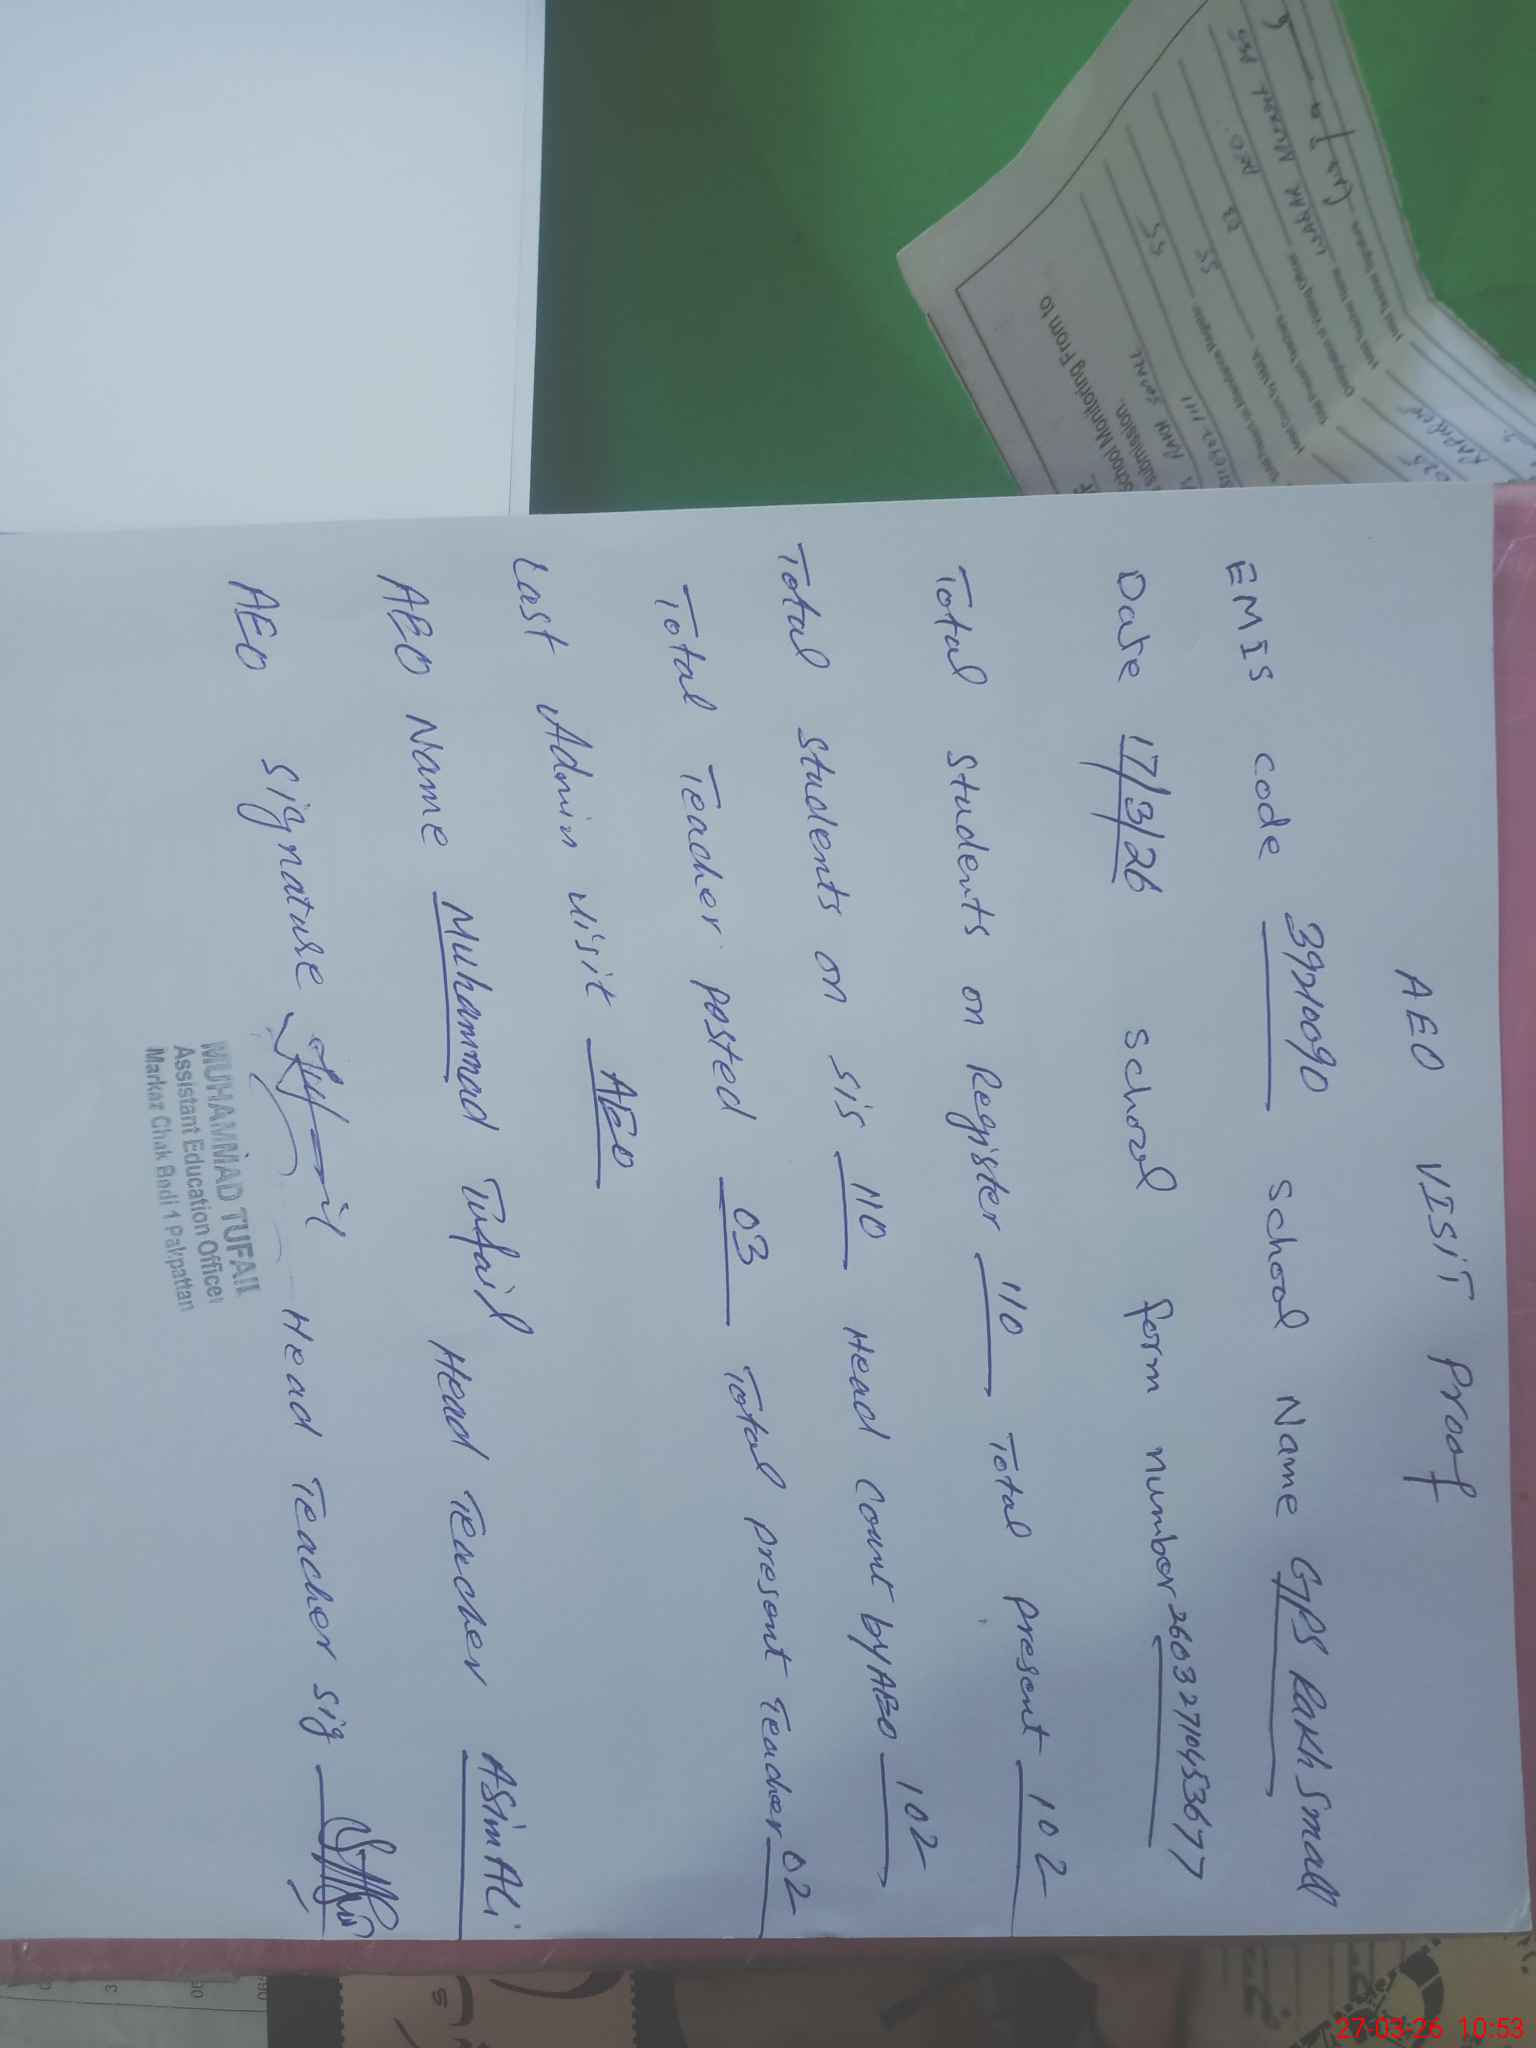 AEO VISIT Proof
EMIS code 39710090 School Name GPS Rakh Small
Date 17/3/26 School form number 26032710453677
Total Students on Register 110 Total present 102
Total Students on SIS 110 Head Count by AEO 102
Total Teacher posted 03 Total present Teacher 02
Last Admin Visit AEO
AEO Name Muhammad Tufail Head Teacher Asim Ali
AEO Signature Head Teacher Sig
MUHAMMAD TUFAIL
Assistant Education Officer
Markaz Chak Bedi 1 Pakpattan
School Monitoring From to
submission.
RAKH SMALL
55
55
03
AEO
WAQAR
Head Teacher Name
Head Teacher Signature
27-03-26 10:53